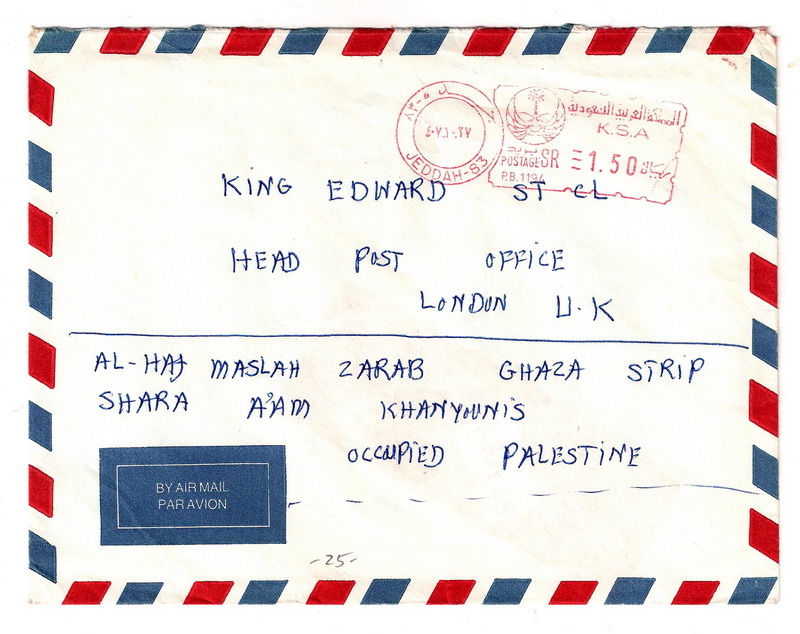 المملكة العربية السعودية
K.S.A
POSTAGE SR 1.50 ريال
P.B. 1194
JEDDAH-83
KING EDWARD ST CL
HEAD POST OFFICE
LONDON U.K
AL-HAJ MASLAH ZARAB GHAZA STRIP
SHARA A'AM KHANYOUNIS
OCCUPIED PALESTINE
BY AIR MAIL
PAR AVION
-25-